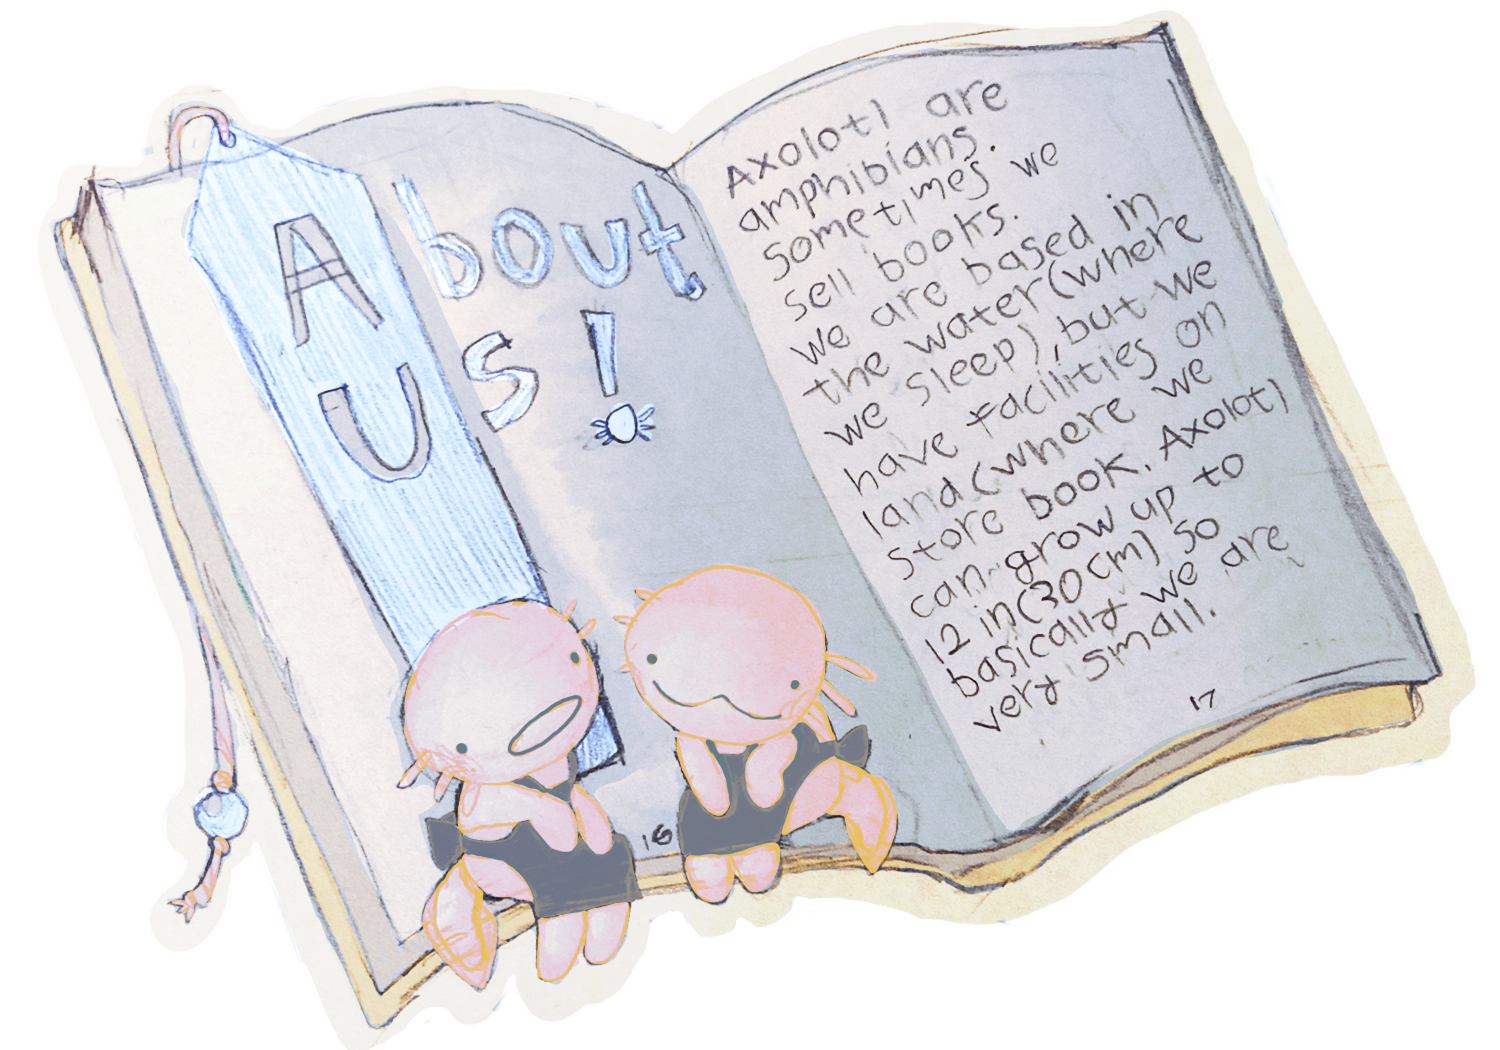 About
Us!
16
Axolotl are
amphibians.
sometimes we
sell books.
we are based in
the water(where
we sleep),but we
have facilities on
land(where we
store book. Axolotl
can grow up to
12 in(30cm) so
basically we are
very small.
17